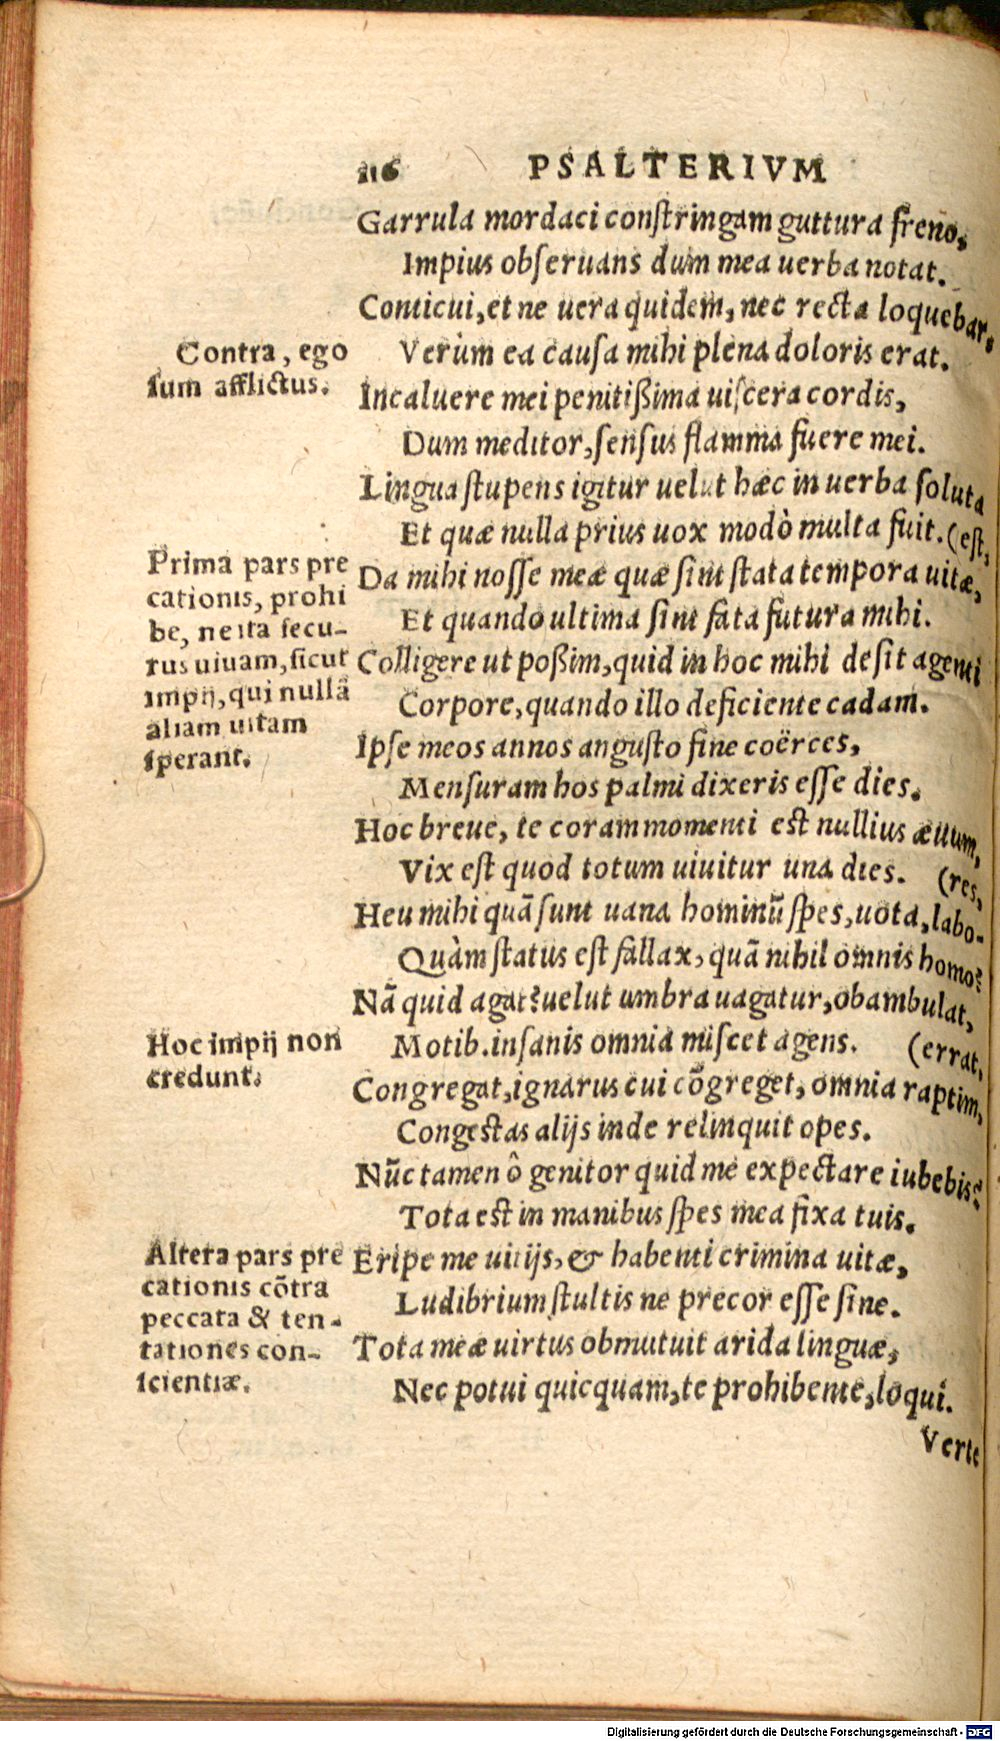 116 PSALTERIVM
Garrula mordaci conſtringam guttura freno,
Impius obſeruans dum mea uerba notat.
Conticui, et ne uera quidem, nec recta loquebar,
Contra, ego
ſum afflictus.
Verùm ea cauſa mihi plena doloris erat.
Incaluere mei penitißima uiſcera cordis,
Dum meditor, ſenſus flamma fuere mei.
Lingua ſtupens igitur uelut hæc in uerba ſoluta
Et quæ nulla prius uox modò multa fuit. (eſt,
Prima pars pre
cationis, prohi
be, ne ita ſecu-
rus uiuam, ſicut
impij, qui nullã
aliam uitam
ſperant.
Da mihi noſſe meæ quæ ſint ſtata tempora uitæ,
Et quando ultima ſint fata futura mihi.
Colligere ut poßim, quid in hoc mihi deſit agenti
Corpore, quando illo deficiente cadam.
Ipſe meos annos anguſto fine coërces,
Menſuram hos palmi dixeris eſſe dies.
Hoc breue, te coram momenti eſt nullius æuum,
Vix eſt quod totum uiuitur una dies. (res,
Heu mihi quã ſunt uana hominũ ſpes, uota, labo-
Quàm ſtatus eſt fallax, quã nihil omnis homo?
Nã quid agat? uelut umbra uagatur, obambulat,
Hoc impij non
credunt.
Motib. inſanis omnia miſcet agens. (errat,
Congregat, ignarus cui cõgreget, omnia raptim,
Congeſtas alijs inde relinquit opes.
Nũc tamen ô genitor quid me expectare iubebis?
Tota eſt in manibus ſpes mea fixa tuis.
Altera pars pre
cationis cõtra
peccata & ten-
tationes con-
ſcientiæ.
Eripe me uitijs, & habenti crimina uitæ,
Ludibrium ſtultis ne precor eſſe ſine.
Tota meæ uirtus obmutuit arida linguæ,
Nec potui quicquam, te prohibente, loqui.
Verte
Digitalisierung gefördert durch die Deutsche Forschungsgemeinschaft - DFG